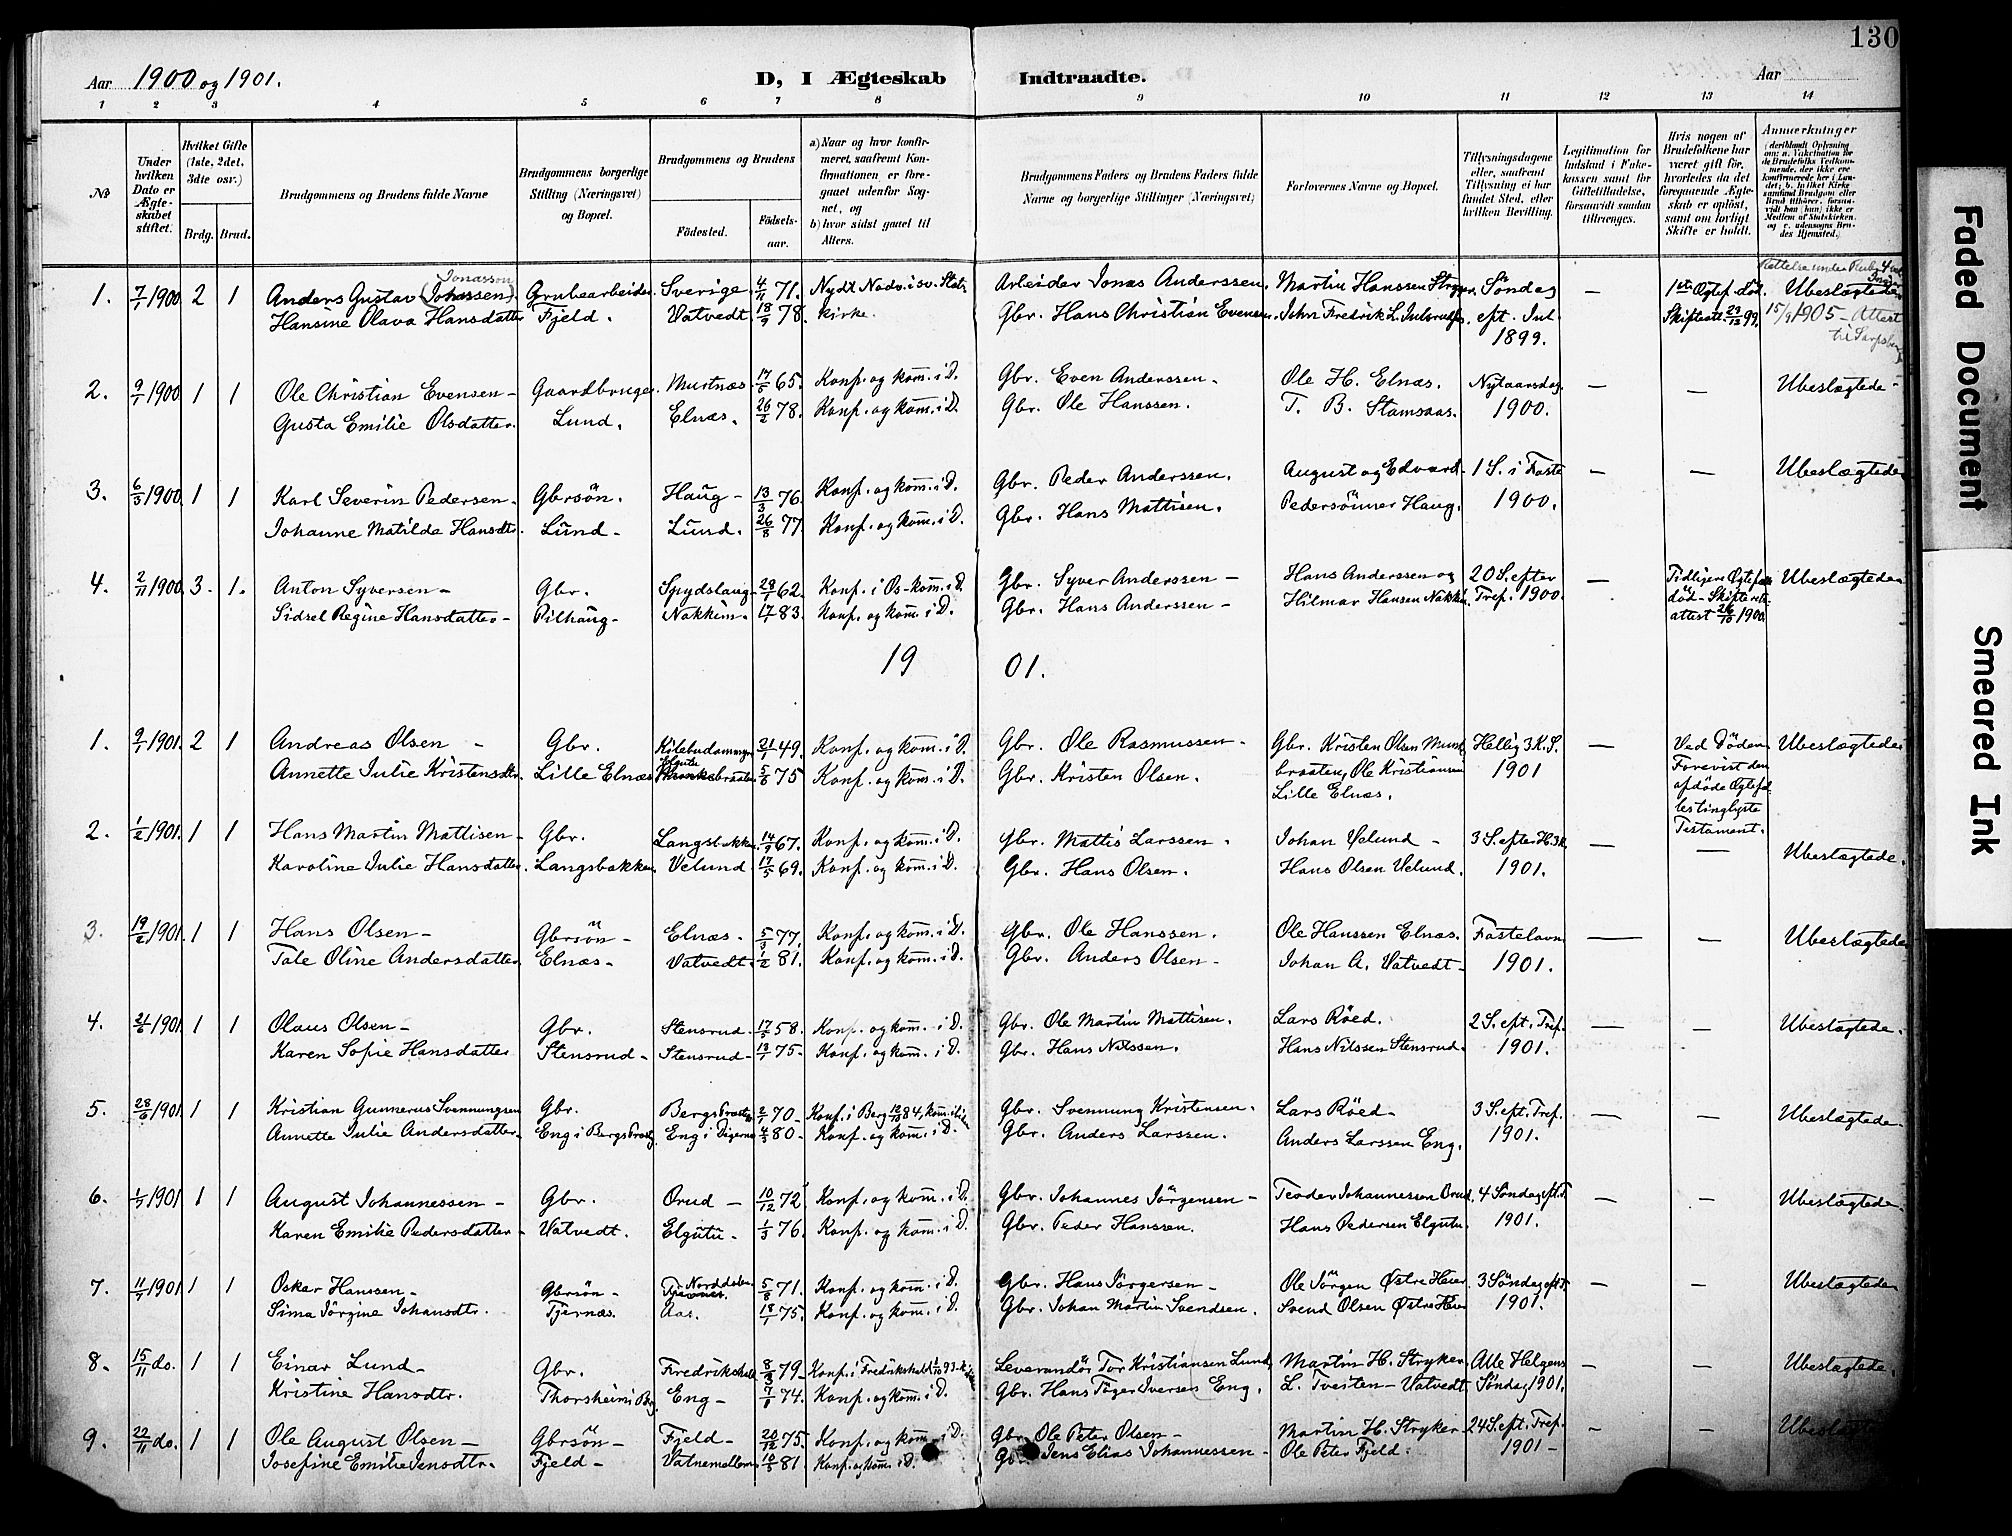 130
Aar 1900 og 1901.
D, I Ægteskab Indtraadte.
Aar
1 2 3 4 5 6 7 8 9 10 11 12 13 14
No
Under hvilken Dato er Ægteskabet stiftet.
Hvilket Gifte (1ste, 2det, 3die osv.)
Brdg. Brud.
Brudgommens og Brudens fulde Navne
Brudgommens borgerlige Stilling (Næringsvei) og Bopæl.
Brudgommens og Brudens
Födested. Födselsaar.
a) Naar og hvor konfirmeret, saafremt Konfirmationen er foregaaet udenfor Sognet, og
b) hvor sidst gaaet til Alters.
Brudgommens Faders og Brudens Faders fulde Navne og borgerlige Stillinger (Næringsvei)
Forlovernes Navne og Bopæl.
Tillysningsdagene eller, saafremt Tillysning ei har fundet Sted, efter hvilken Bevilling.
Legitimation for Indskud i Enkekassen samt for Giftetilladelse, forsaavidt saadan tiltrænges.
Hvis nogen af Brudefolkene har været gift för, hvorledes da det foregaaende Ægteskab er oplöst, samt om lovligt Skifte er holdt.
Anmærkninger
1. 7/1 1900 2 1 Anders Gustav (Johassen) Jonasson Grubearbeider Sverige 4/11 71. Nydt Nadv. i sv. Stats Arbeider Jonas Anderssen. Martin Hanssen Stryger. Søndag — 1ste Ægtef. död. Ubeslægtede
Hansine Olava Hansdatter Fjeld. Vatvedt 18/9 78. kirke. Gbr. Hans Christian Evensen. John Fredrik L. eft. Jul 1899. Skifteatt. 29/12 99. 15/9 1905 — Attest til Sarpsborg
2. 9/1 1900 1 1 Ole Christian Evensen — Gaardbruger. Murtnæs. 17/5 65. Konf. og kom. i D. Gbr. Even Anderssen. Ole H. Elnæs. Nytaarsdag — — Ubeslægtede
Gusta Emilie Olsdatter. Lund. Elnæs. 26/2 78. Konf. og kom. i D. Gbr. Ole Hanssen. T. B. Stamsaas. 1900.
3. 6/3 1900 1 1 Karl Severin Pedersen — Gbrsön. Haug — 13/3 76. Konf. og kom. i D. Gbr. Peder Anderssen. August og Edvard 1 S. i Faste — — Ubeslægtede
Johanne Matilda Hansdtr. Lund — Lund. 26/8 77. Konf. og kom. i D. Gbr. Hans Mattisen. Pedersönner Haug. 1900.
4. 2/11 1900 3. 1. Anton Syversen — Gbr. Spydslaug 28/1 62. Konf. i Os — kom. i D. Gbr. Syver Anderssen — Hans Anderssen og 20 S. efter — Tidligere Ægtefæller Ubeslægtede
Sidsel Regine Hansdatter — Pilhaug — Nakkim — 17/7 83. Konf. og kom. i D. Gbr. Hans Anderssen — Hilmar Hansen Nakkim. Tref. 1900. död — Skifterets attest 26/10 1900.
1901.
1. 9/1 1901. 2 1 Andreas Olsen — Gbr. Kilebudammyren 21/1 49. Konf. og kom. i D. Gbr. Ole Rasmussen — Gbr. Kristen Olsen Hellig 3 K. S. — Ved Döden. Ubeslægtede
Annette Julie Kristensdtr. Lille Elnæs 5/6 75 Konf. og kom. i D. Gbr. Kristen Olsen. braaten, Ole Kristiansen 1901 Forevist den
Lille Elnæs. afdöde Ægtef. testinglyste Testament.
2. 1/2 1901. 1 1 Hans Martin Mattisen — Gbr. Langsbakken. 14/9 67. Konf. og kom. i D. Gbr. Mattis Larssen. Johan Velund — 3 S. efter H. 3 K. — — Ubeslægtede.
Karoline Julie Hansdatter. Langsbakken. Velund 17/5 69. Konf. og kom. i D. Gbr. Hans Olsen. Hans Olsen Velund. 1901.
3. 19/2 1901. 1 1 Hans Olsen — Gbrsön — Elnæs — 5/3 77. Konf. og kom. i D. Gbr. Ole Hanssen. Ole Hanssen Elnæs. Fastelavn — — Ubeslægtede
Tale Oline Andersdatter. Elnæs — Vatvedt 1/2 81. Konf. og kom. i D. Gbr. Anders Olsen — Johan A. Vatvedt — 1901.
4. 21/6 1901 1 1 Olaus Olsen — Gbr. Stensrud. 17/5 58. Konf. og kom. i D. Gbr. Ole Martin Mattisen. Lars Röed. 2 S. eft. Tref. — — Ubeslægtede.
Karen Sofie Hansdatter Stensrud — Stensrud — 13/7 75. Konf. og kom. i D. Gbr. Hans Nilssen. Hans Nilssen Stensrud. 1901.
5. 28/6 1901 1 1 Kristian Gunnerus Svenningsen Gbr. Bergs Præstg. 2/1 70 — Konf. i Berg 12/10 84, kom. Gbr. Svenning Kristensen. Lars Röed — 3 S. eft. Tref. — — Ubeslægtede
Annette Julie Andersdatter. Eng i Bergs Prstg. Eng i Digernæs 4/3 80 — Konf. og kom. i D. Gbr. Anders Larssen. Anders Larssen Eng. 1901.
6. 1/7 1901 1 1 August Johannessen — Gbr. Orud — 10/12 72 Konf. og kom. i D. Gbr. Johannes Jörgensen — Teodor Johannessen Orud. 4 Søndag eft. T. — — Ubeslægtede.
Karen Emilie Pedersdatter — Vatvedt. Elgutu — 1/3 76. Konf. og kom. i D. Gbr. Peder Hanssen. Hans Pedersen Elgutu. 1901.
7. 11/7 1901 1 1 Oskar Hanssen — Gbrsön — Norddalen Tjernes. 5/8 71. Konf. og kom. i D. Gbr. Hans Jörgersen — Ole Jörgen Østre Heier 3 Søndag eft. T. — — Ubeslægtede
Sima Jörgine Johansdtr. Tjernæs. Aas. 18/1 75. Konf. og kom. i D. Gbr. Johan Martin Svendsen. Svend Olsen Østre Heier 1901.
8. 15/11 do. 1 1 Einar Lund — Gbr. Fredrikshald 8/3 79 — Konf. i Fredrikshald 1/10 93 — Leverandör Tor Kristiansen Lund. Martin H. Stryker. Alle Helgens — — Ubeslægtede.
Kristine Hansdtr. Thorsheim i Berg. Eng — 7/6 74. Konf. og kom. i D. Gbr. Hans Töger Iversen Eng. L. Tveiten — Vatvedt. Søndag 1901.
9. 22/11 do. 1 1 Ole August Olsen — Gbrsön — Fjeld — 20/12 75. Konf. og kom. i D. Gbr. Ole Peter Olsen — Martin H. Stryker 24 S. eft. Tref. — — Ubeslægtede
Josefine Emilie Jensdtr. Fjeld — Vatnemellem 10/5 81. Konf. og kom. i D. Gbr. Jens Elias Johannessen — Ole Peter Fjeld. 1901 —
Faded Document
Smeared Ink